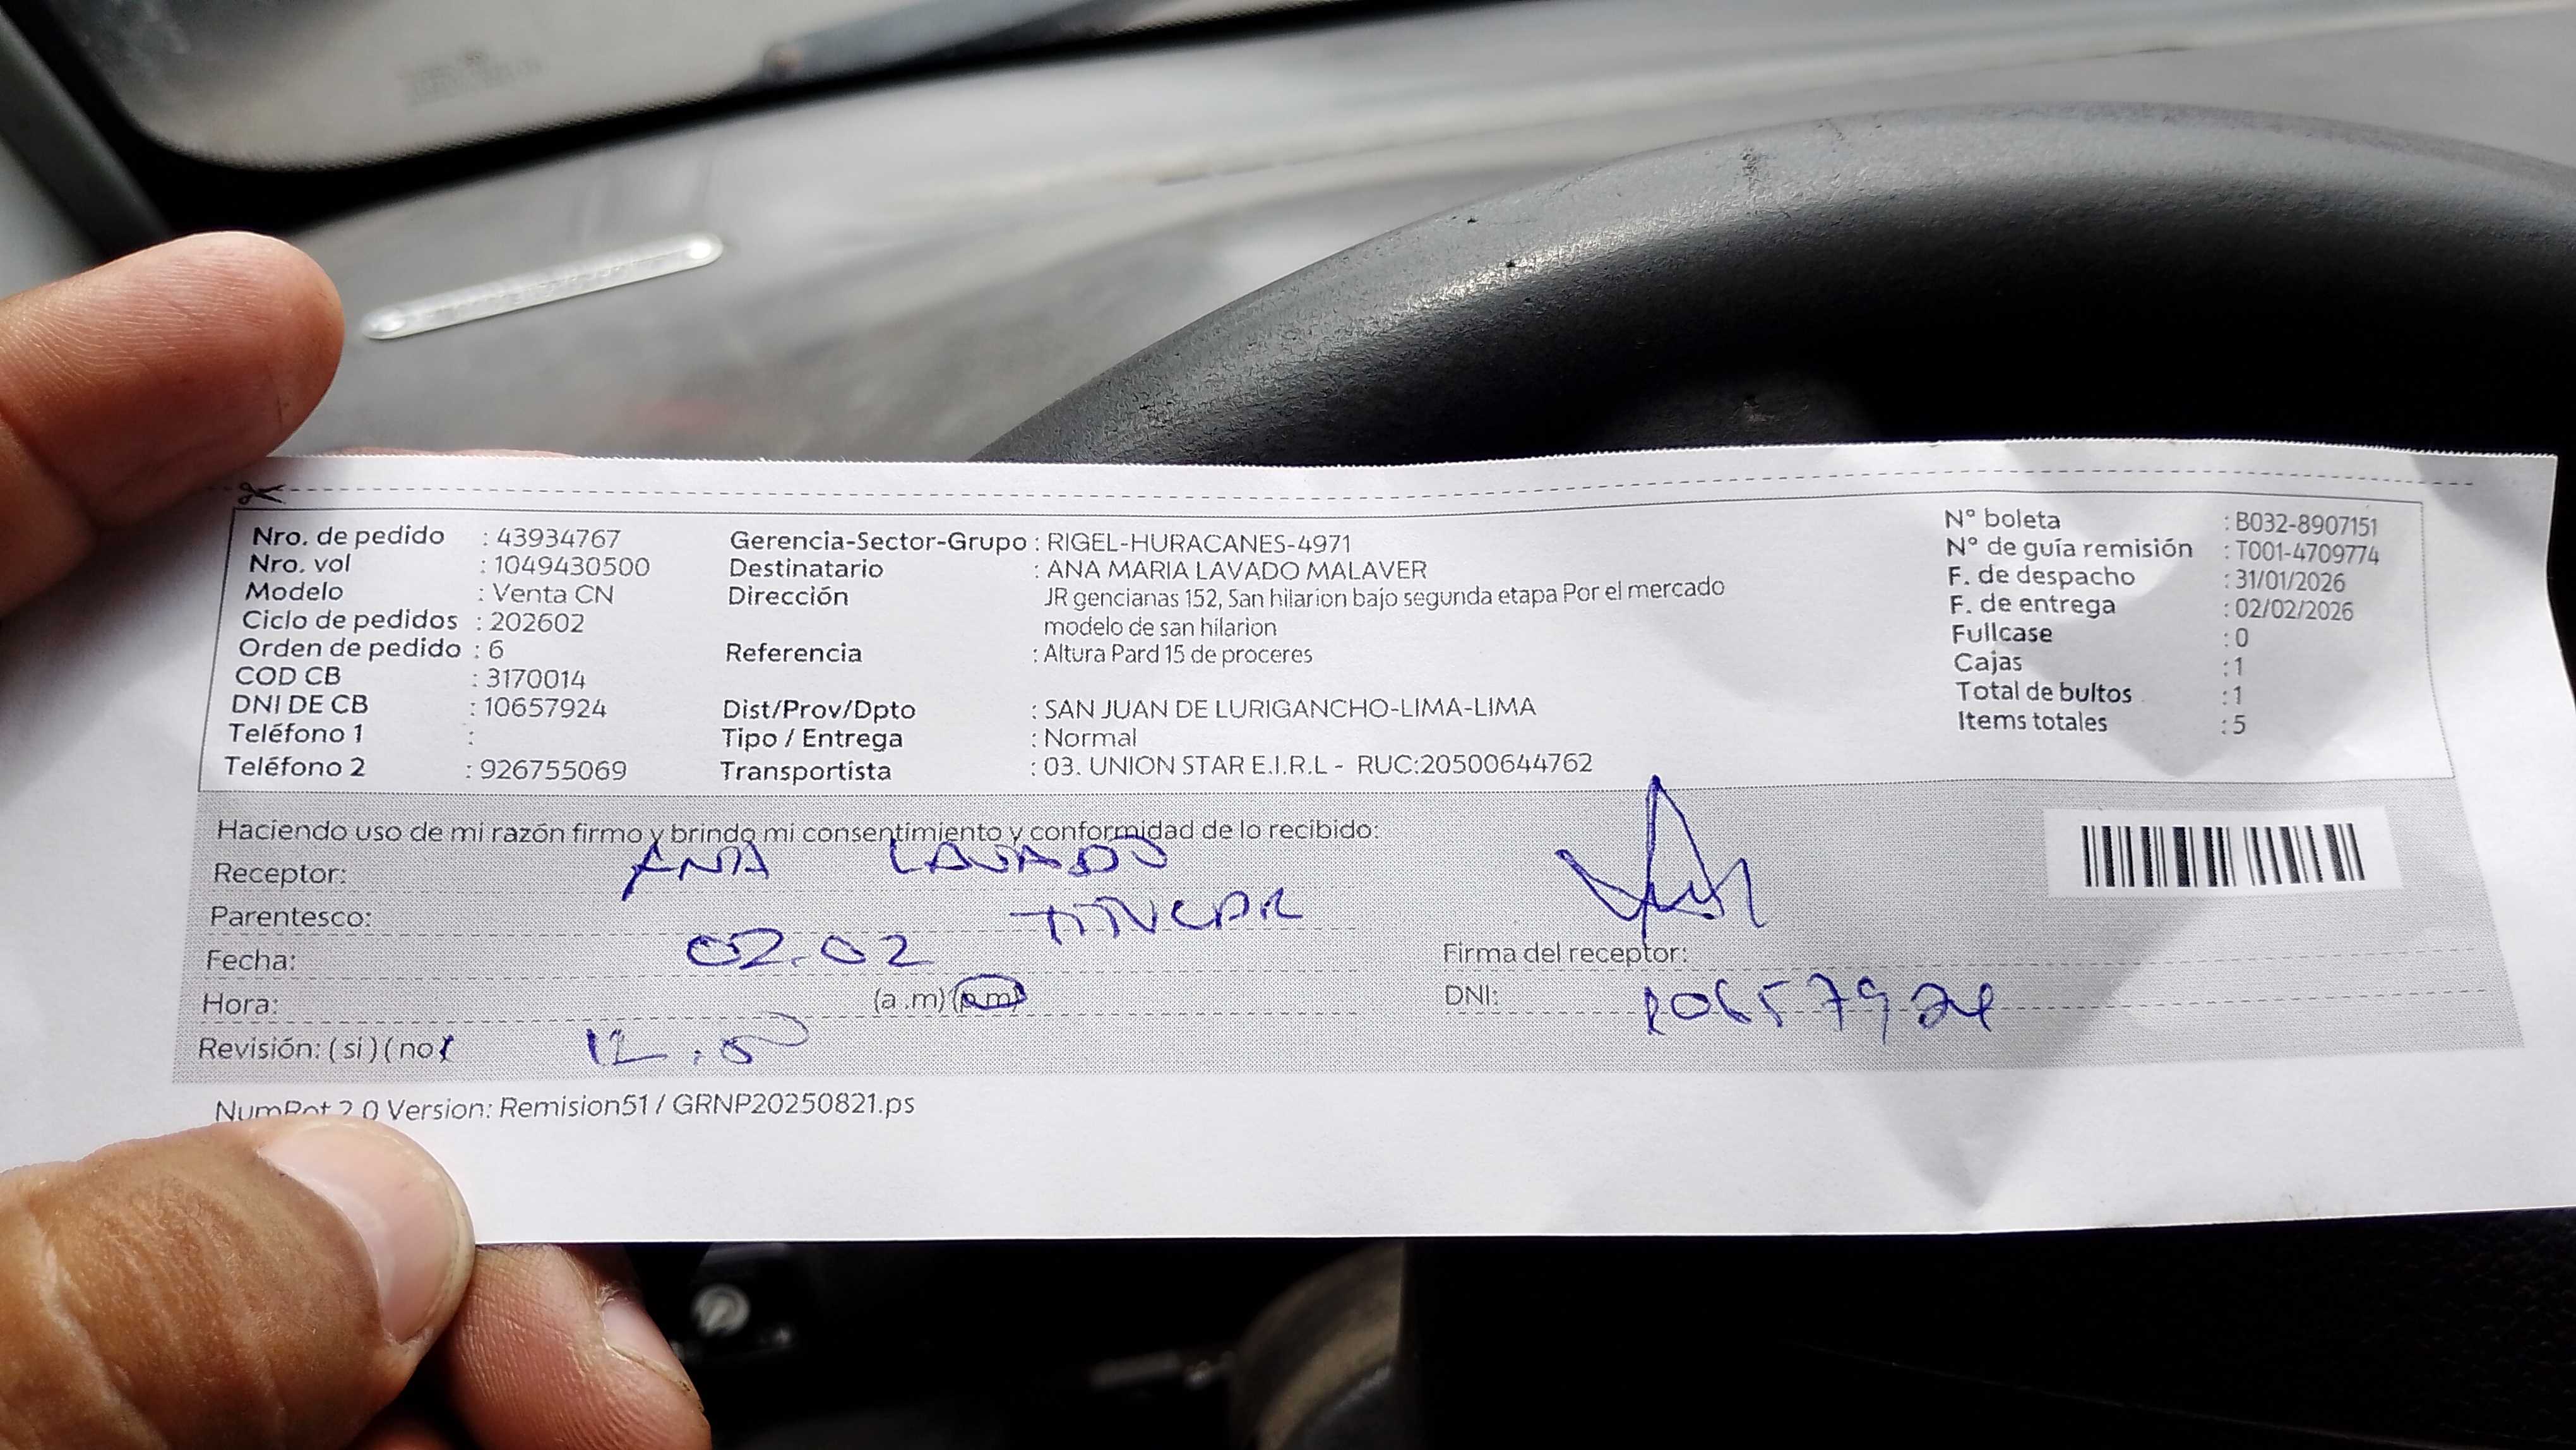 Nro. de pedido : 43934767
Nro. vol : 1049430500
Modelo : Venta CN
Ciclo de pedidos : 202602
Orden de pedido : 6
COD CB : 3170014
DNI DE CB : 10657924
Teléfono 1 :
Teléfono 2 : 926755069
Gerencia-Sector-Grupo : RIGEL-HURACANES-4971
Destinatario : ANA MARIA LAVADO MALAVER
Dirección JR gencianas 152, San hilarion bajo segunda etapa Por el mercado
modelo de san hilarion
Referencia : Altura Pard 15 de proceres
Dist/Prov/Dpto : SAN JUAN DE LURIGANCHO-LIMA-LIMA
Tipo / Entrega : Normal
Transportista : 03. UNION STAR E.I.R.L - RUC:20500644762
N° boleta : B032-8907151
N° de guía remisión : T001-4709774
F. de despacho : 31/01/2026
F. de entrega : 02/02/2026
Fullcase : 0
Cajas : 1
Total de bultos : 1
Items totales : 5
Haciendo uso de mi razón firmo y brindo mi consentimiento y conformidad de lo recibido:
Receptor: ANA LAVADO
Parentesco: TITULAR
Fecha: 02.02
Hora: (a.m) (p.m)
Revisión: (si) (no) 12.50
Firma del receptor:
DNI: 10657924
NumRot 2.0 Version: Remision51 / GRNP20250821.ps